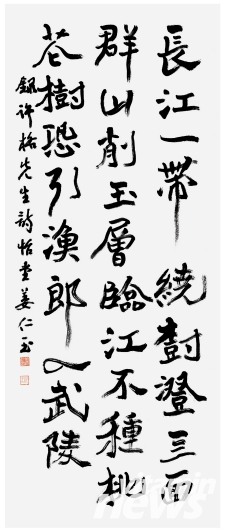 長江一帶 繞澄三面
群山削玉層臨江不種桃
花樹恐引漁郎入武陵
錄許格先生詩怡堂姜仁玉
news